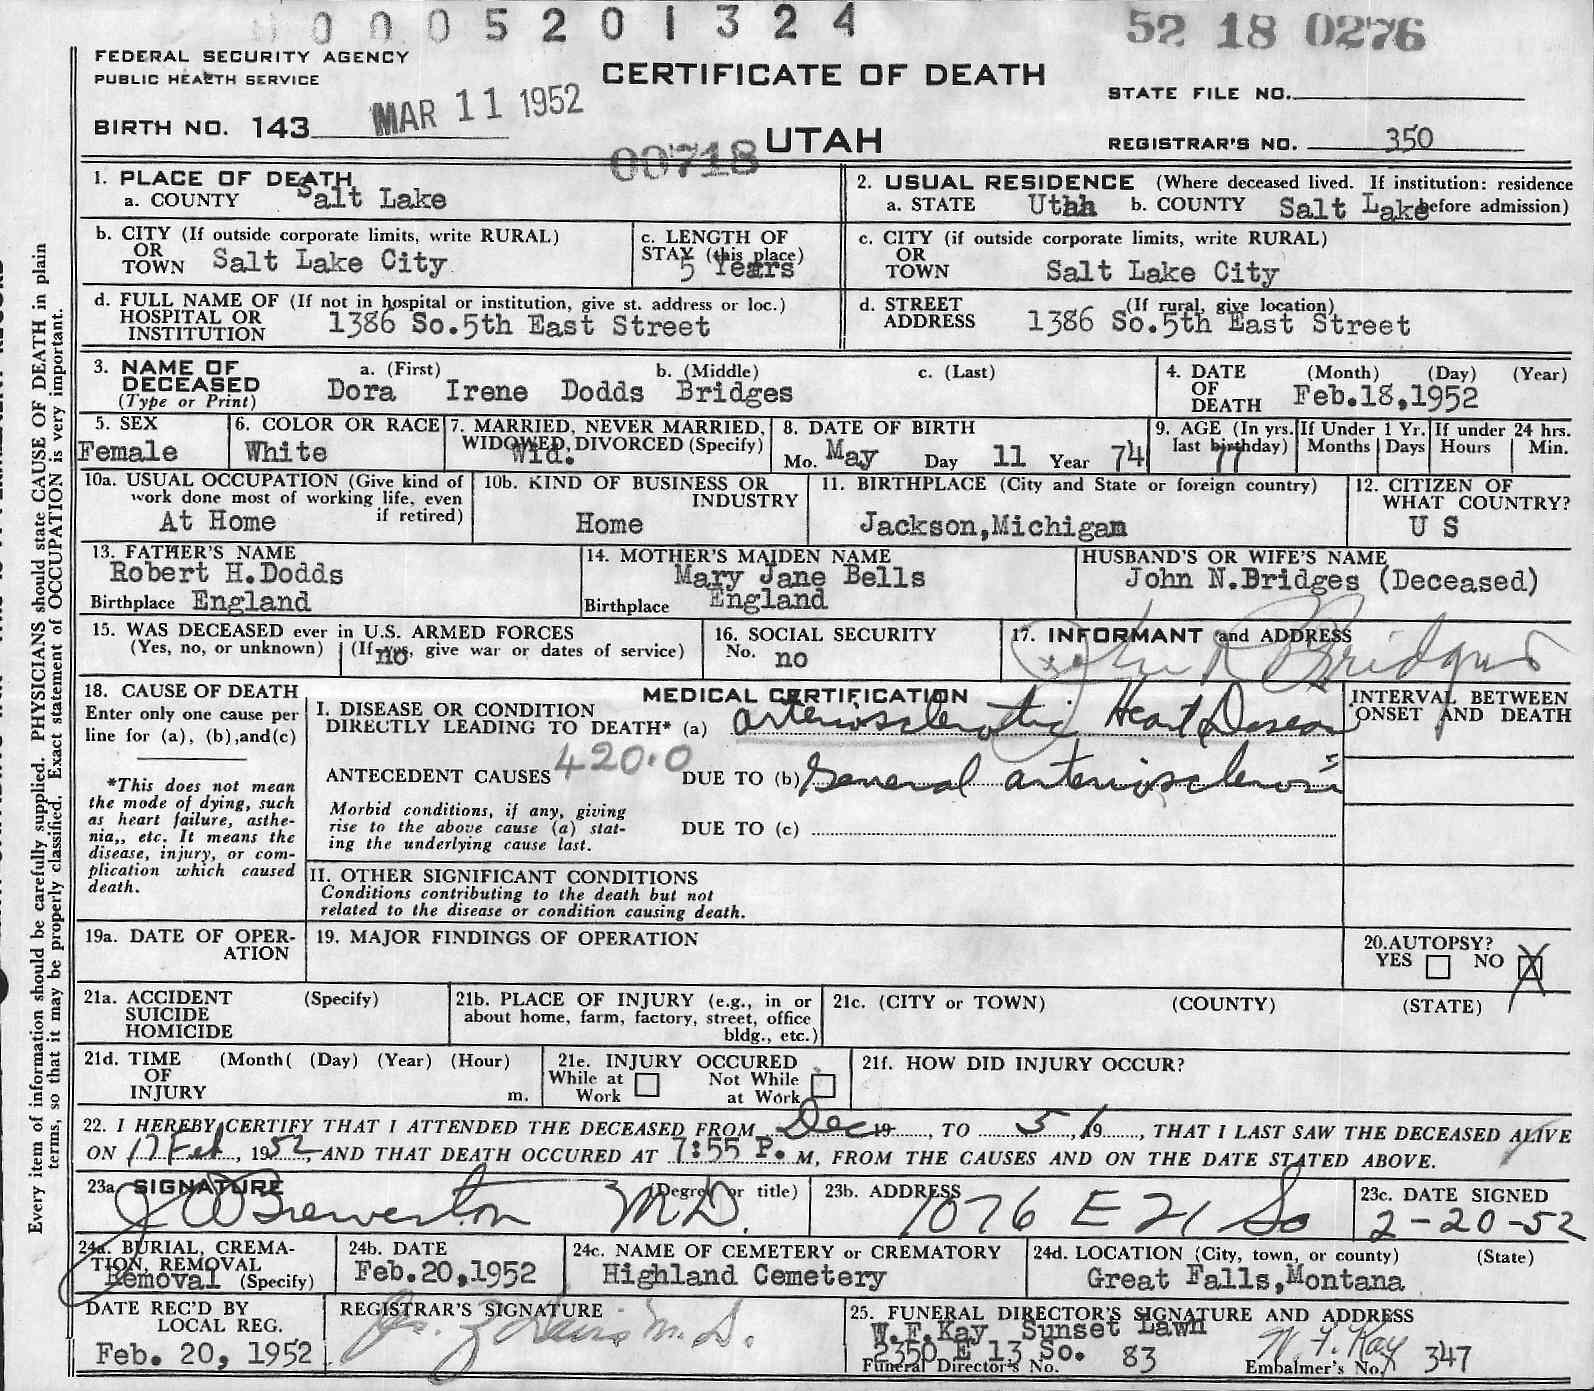 0 0 0 5 2 0 1 3 2 4
52 18 0276
FEDERAL SECURITY AGENCY
PUBLIC HEALTH SERVICE
CERTIFICATE OF DEATH
STATE FILE NO.
BIRTH NO. 143
MAR 11 1952
00718
UTAH
REGISTRAR'S NO. 350
1. PLACE OF DEATH
a. COUNTY Salt Lake
2. USUAL RESIDENCE (Where deceased lived. If institution: residence before admission)
a. STATE Utah b. COUNTY Salt Lake
b. CITY (If outside corporate limits, write RURAL)
OR
TOWN Salt Lake City
c. LENGTH OF
STAY (this place)
5 Years
c. CITY (if outside corporate limits, write RURAL)
OR
TOWN Salt Lake City
d. FULL NAME OF (If not in hospital or institution, give st. address or loc.)
HOSPITAL OR
INSTITUTION 1386 So.5th East Street
d. STREET (If rural, give location)
ADDRESS 1386 So.5th East Street
3. NAME OF DECEASED
(Type or Print)
a. (First) b. (Middle) c. (Last)
Dora Irene Dodds Bridges
4. DATE OF DEATH
(Month) (Day) (Year)
Feb.18,1952
5. SEX
Female
6. COLOR OR RACE
White
7. MARRIED, NEVER MARRIED,
WIDOWED, DIVORCED (Specify)
Wid.
8. DATE OF BIRTH
Mo. May Day 11 Year 74
9. AGE (In yrs. last birthday)
77
If Under 1 Yr.
Months Days
If under 24 hrs.
Hours Min.
10a. USUAL OCCUPATION (Give kind of
work done most of working life, even
if retired)
At Home
10b. KIND OF BUSINESS OR
INDUSTRY
Home
11. BIRTHPLACE (City and State or foreign country)
Jackson,Michigan
12. CITIZEN OF
WHAT COUNTRY?
U S
13. FATHER'S NAME
Robert H.Dodds
Birthplace England
14. MOTHER'S MAIDEN NAME
Mary Jane Bells
Birthplace England
HUSBAND'S OR WIFE'S NAME
John N.Bridges (Deceased)
15. WAS DECEASED ever in U.S. ARMED FORCES
(Yes, no, or unknown) (If yes, give war or dates of service)
no
16. SOCIAL SECURITY
No. no
17. INFORMANT and ADDRESS
John R Bridges
18. CAUSE OF DEATH
Enter only one cause per
line for (a), (b),and(c)
*This does not mean
the mode of dying, such
as heart failure, asthe-
nia,, etc. It means the
disease, injury, or com-
plication which caused
death.
MEDICAL CERTIFICATION
I. DISEASE OR CONDITION
DIRECTLY LEADING TO DEATH* (a) arteriosclerotic Heart Disease
INTERVAL BETWEEN
ONSET AND DEATH
420.0
ANTECEDENT CAUSES DUE TO (b) General arteriosclerosis
Morbid conditions, if any, giving
rise to the above cause (a) stat-
ing the underlying cause last.
DUE TO (c)
II. OTHER SIGNIFICANT CONDITIONS
Conditions contributing to the death but not
related to the disease or condition causing death.
19a. DATE OF OPER-
ATION
19. MAJOR FINDINGS OF OPERATION
20.AUTOPSY?
YES NO X
21a. ACCIDENT (Specify)
SUICIDE
HOMICIDE
21b. PLACE OF INJURY (e.g., in or
about home, farm, factory, street, office
bldg., etc.)
21c. (CITY or TOWN) (COUNTY) (STATE)
21d. TIME (Month( (Day) (Year) (Hour)
OF
INJURY m.
21e. INJURY OCCURED
While at Work Not While at Work
21f. HOW DID INJURY OCCUR?
22. I HEREBY CERTIFY THAT I ATTENDED THE DECEASED FROM Dec 19, TO 51, 19, THAT I LAST SAW THE DECEASED ALIVE
ON 17 Feb, 1952, AND THAT DEATH OCCURED AT 7:55 P. M, FROM THE CAUSES AND ON THE DATE STATED ABOVE.
23a SIGNATURE (Degree or title)
J W Brewerton M.D.
23b. ADDRESS
1076 E 21 So
23c. DATE SIGNED
2-20-52
24a. BURIAL, CREMA-
TION, REMOVAL
Removal (Specify)
24b. DATE
Feb.20,1952
24c. NAME OF CEMETERY or CREMATORY
Highland Cemetery
24d. LOCATION (City, town, or county) (State)
Great Falls,Montana
DATE REC'D BY
LOCAL REG.
Feb. 20, 1952
REGISTRAR'S SIGNATURE
M.D.
25. FUNERAL DIRECTOR'S SIGNATURE AND ADDRESS
W.F.Kay Sunset Lawn
W F Kay
2350 E 13 So.
Funeral Director's No. 83
Embalmer's No. 347
Every item of information should be carefully supplied. PHYSICIANS should state CAUSE OF DEATH in plain
terms, so that it may be properly classified. Exact statement of OCCUPATION is very important.